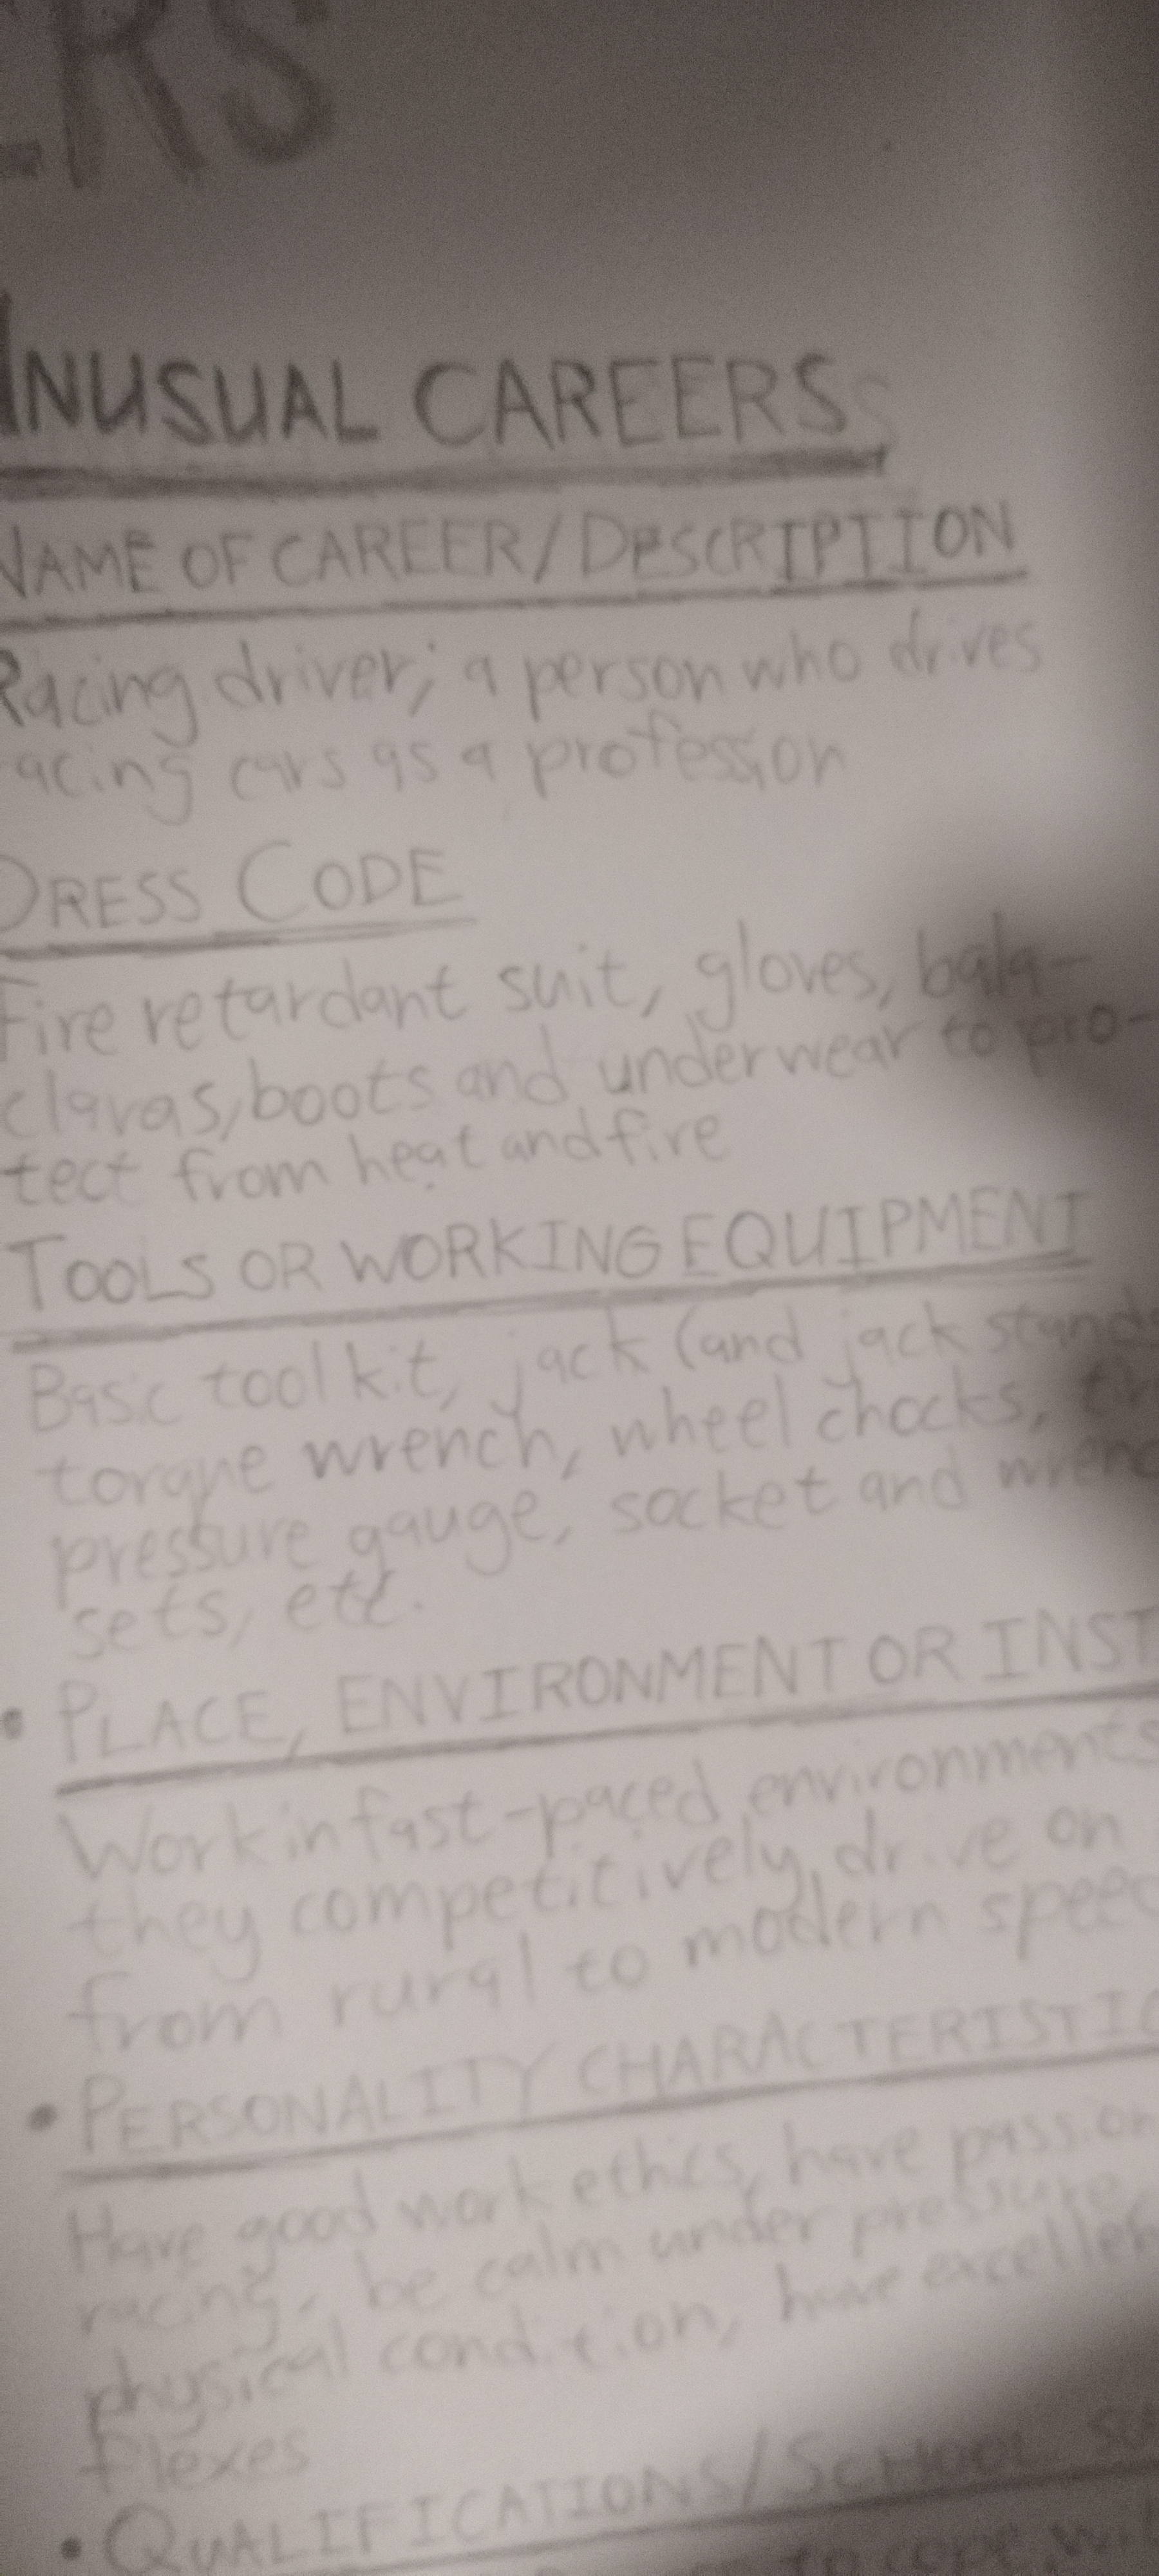 ERS
UNUSUAL CAREERS
NAME OF CAREER/DESCRIPTION
Racing driver; a person who drives
racing cars as a profession
DRESS CODE
Fire retardant suit, gloves, bala-
clavas, boots and underwear to pro-
tect from heat and fire
TOOLS OR WORKING EQUIPMENT
Basic tool kit, jack (and jack stands
torque wrench, wheel chocks,
pressure gauge, socket and wrenc
sets, etc.
• PLACE, ENVIRONMENT OR INST
Work in fast-paced environments
they competitively drive on
from rural to modern speed
• PERSONALITY CHARACTERISTIC
Have good work ethics, have passion
racing, be calm under pressure,
physical condition, have excellen
flexes
• QUALIFICATIONS/SCHOOL
to cope wit